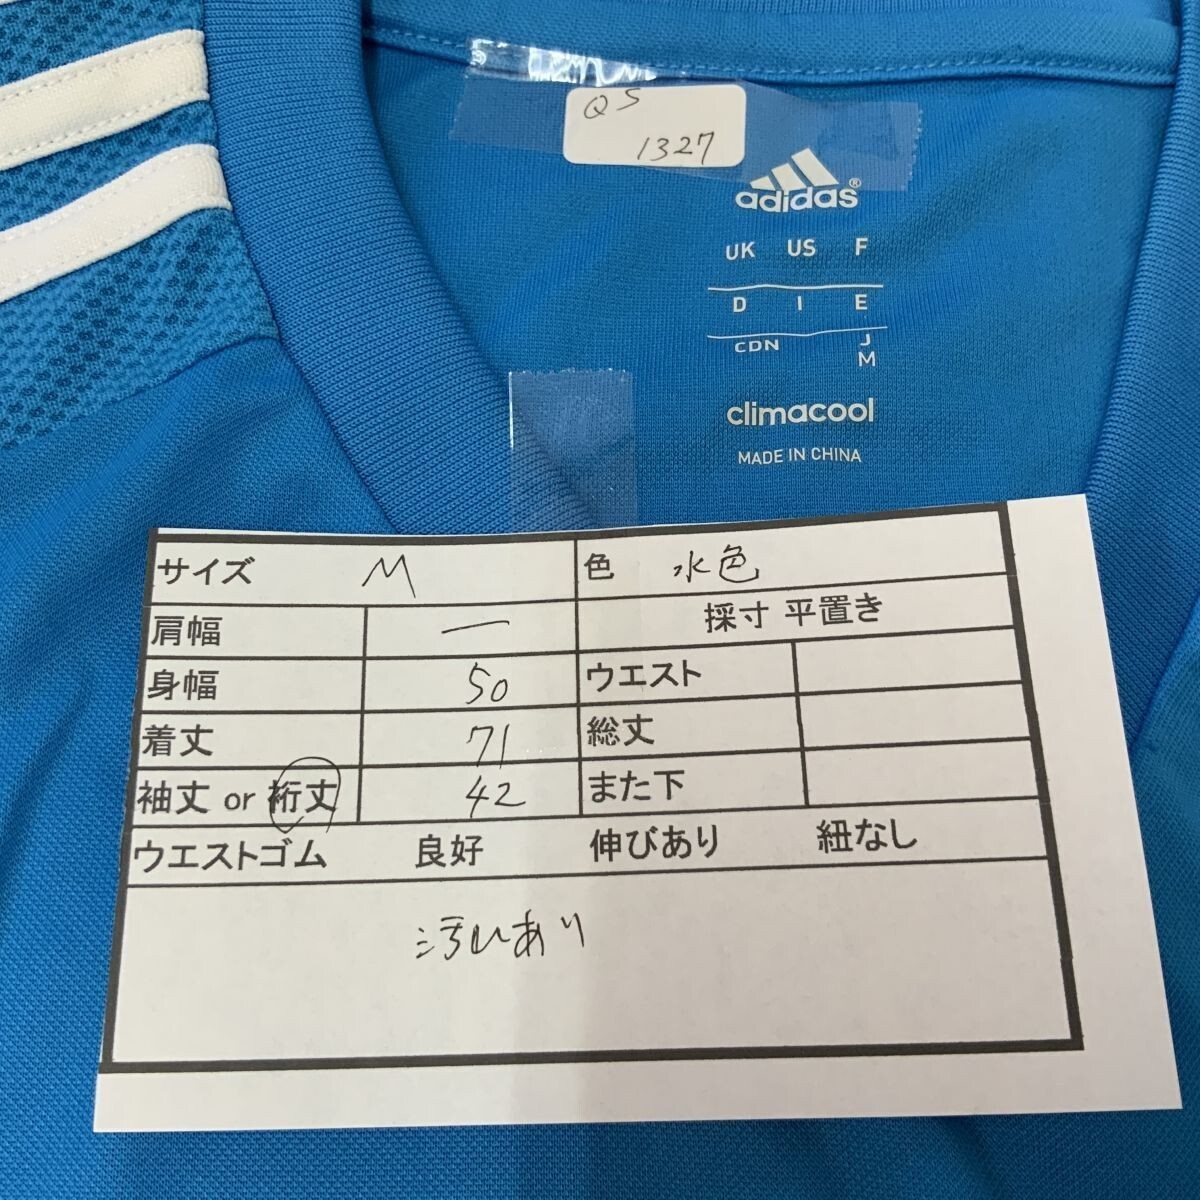 QS
1327
adidas®
UK US F
D I E
CDN J
M
climacool
MADE IN CHINA
サイズ M 色 水色
肩幅 ー 採寸 平置き
身幅 50 ウエスト
着丈 71 総丈
袖丈 or 裄丈 42 また下
ウエストゴム 良好 伸びあり 紐なし
汚れあり